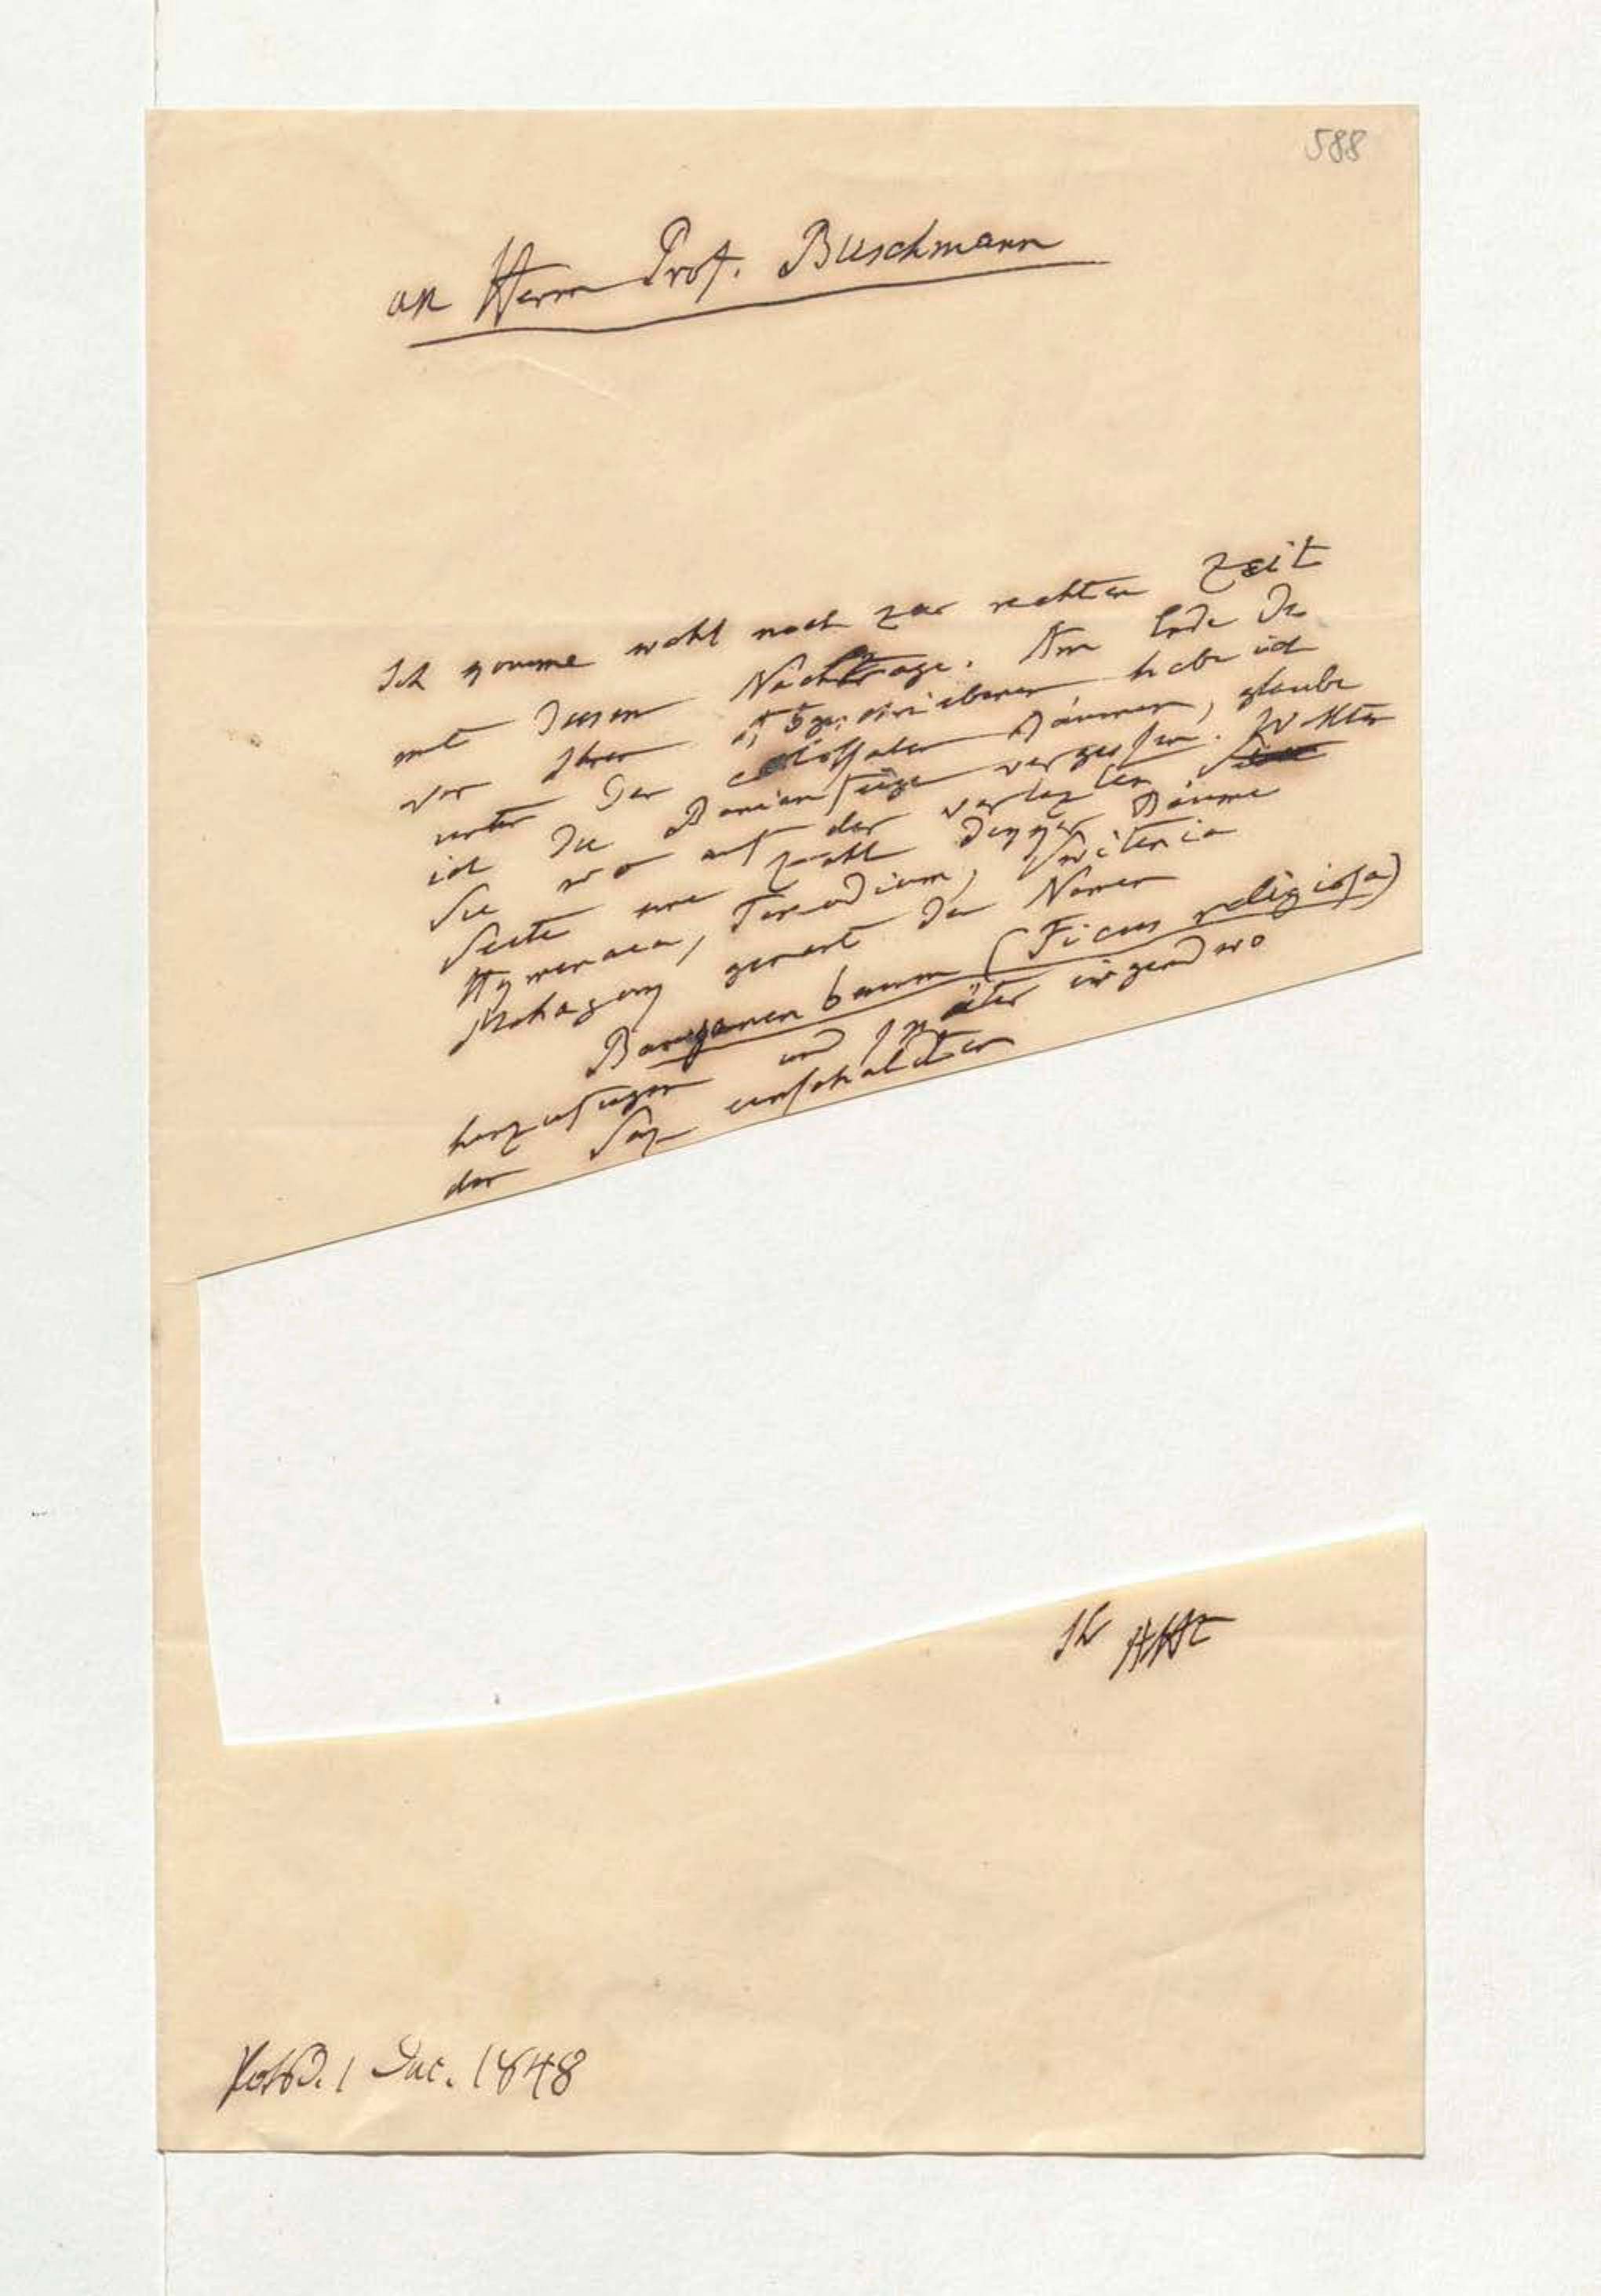 588
an Herrn Prof. Buschmann
Ich komme wohl noch zur rechten Zeit
mit diesem Nachtrage. Am Ende des
von Ihnen abgeschriebenen habe ich
unter den colossalen Bäumen, glaube
ich die Banianfeige vergessen. Wollten
Sie wo auf der vorlezten
Seite eine Zahl dikker Bäume
Hymenaea, Taxodium, Switenia
Mahagony genant den Namen
Banyanen baum (Ficus religiosa)
hinzufügen und später irgendwo
den Saz einschalten
Ihr AHt
Potsd. 1 Dec. 1848